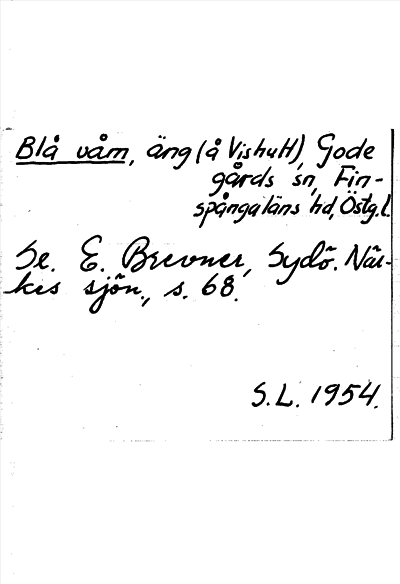 Blå våm, äng (å Vishult), Gode
gårds sn, Fin-
spånga läns hd, Östg. l.
Se. E. Brevner, Sydö. När-
kes sjön., s. 68.
S.L. 1954.